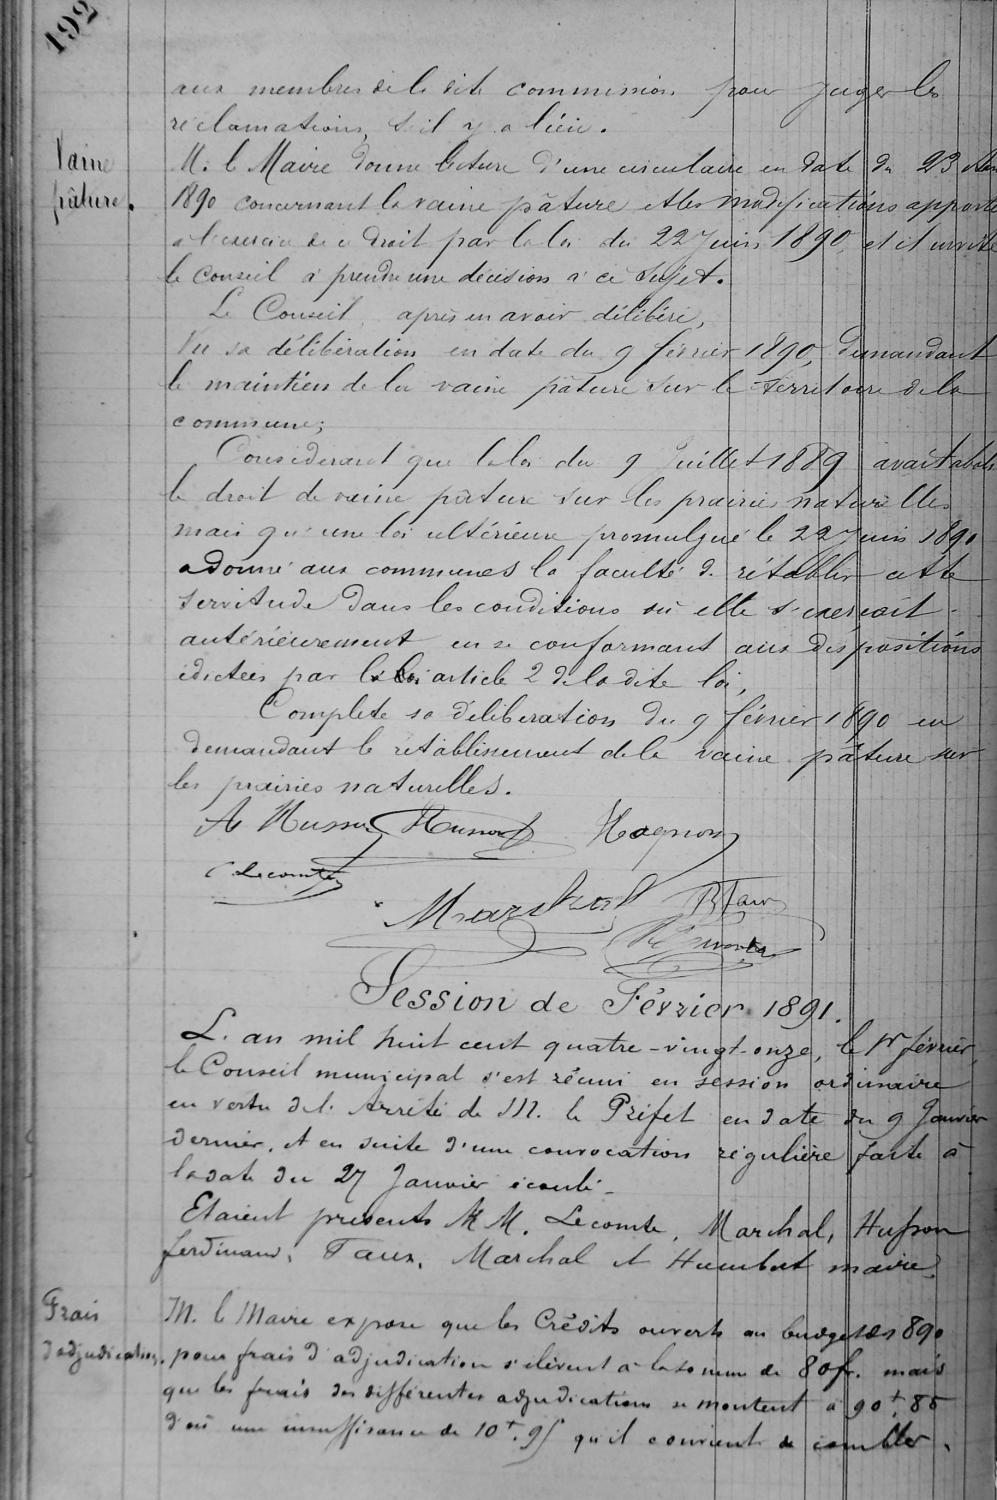 192
aux membres de la dite commission pour juger les
réclamations, s'il y a lieu.
Vaine
pâture.
M. le Maire donne lecture d'une circulaire en date du 23
1890 concernant la vaine pâture et les modifications apporté
à l'exercice de ce droit par la loi du 22 Juin 1890, et il invite
le Conseil à prendre une décision à ce sujet.
Le Conseil, après en avoir délibéré,
Vu sa délibération en date du 9 février 1890, demandant
le maintien de la vaine pâture sur le territoire de la
commune;
Considerant que la loi du 9 Juillet 1889 avait aboli
le droit de vaine pâture sur les prairies naturelles
mais qu'une loi ultérieure promulgué le 22 Juin 1890
a donné aux communes la faculté de rétablir cette
servitude dans les conditions où elle s'exerçait
antérieurement en se conformant aux dispositions
édictées par l'article 2 de la dite loi,
Complete sa déliberation du 9 février 1890 en
demandant le rétablissement de la vaine pâture sur
les prairies naturelles.
A Husson Husson Hagnon
Lecomte
Marchal B Taux
Session de Février 1891.
L'an mil huit cent quatre-vingt-onze, le 1er février,
le Conseil municipal s'est réuni en session ordinaire
en vertu de l'Arrêté de M. le Préfet en date du 9 Janvier
dernier, et en suite d'une convocation régulière faite à
la date du 27 Janvier écoulé-
Etaient présents MM. Lecomte, Marchal, Husson
ferdinand, Taux, Marchal et Humbert maire.
Frais
d'adjudication.
M. le Maire expose que les Crédits ouverts au budget de 1890
pour frais d'adjudication s'élèvent à la somme de 80fr. mais
que les frais des différentes adjudications se montent à 90f.85
d'où une insuffisance de 10f.95 qu'il convient de combler.